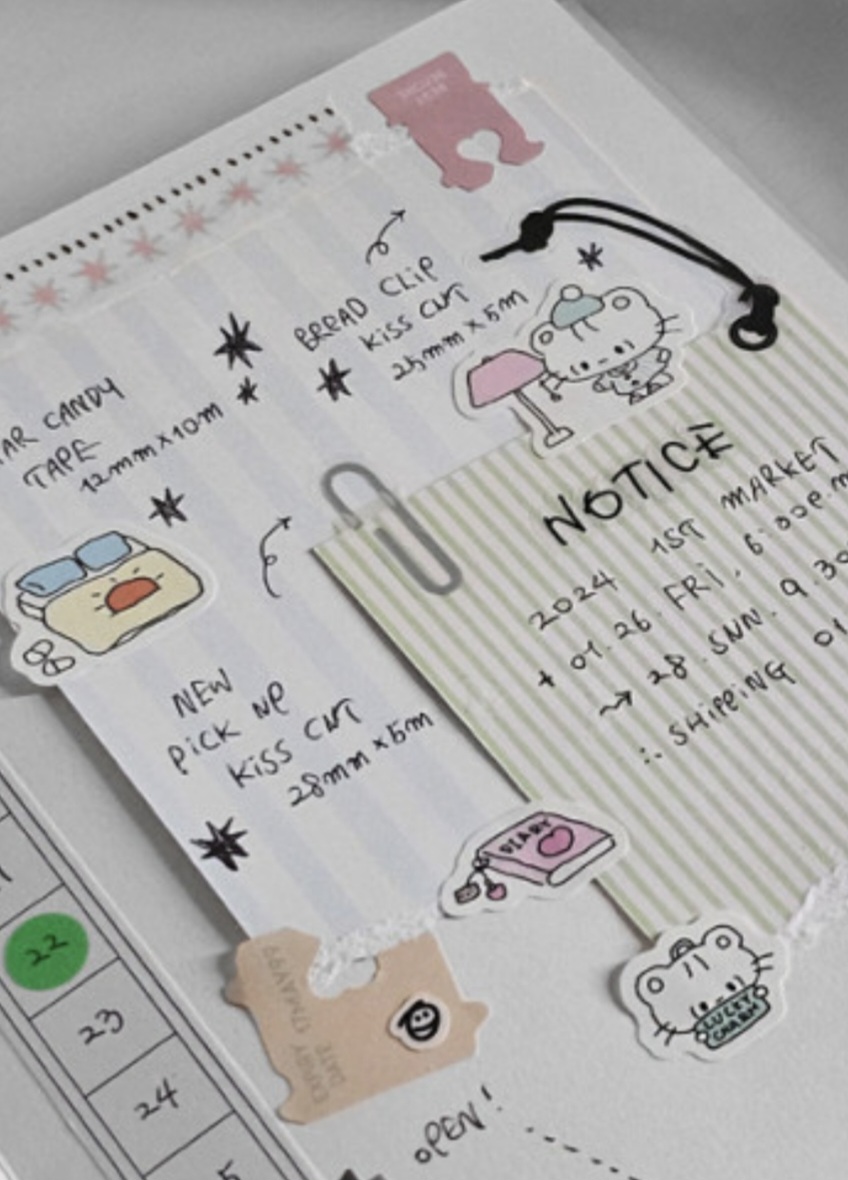 BREAD CLIP
KISS CUT
25mm x 5m
AR CANDY
TAPE
12mm x 10m
NOTICE
2024 1ST MARKET
+ 01.26. FRI. 6:00P.m
→ 28. SUN. 9.30
∴ SHIPPING 01
NEW
PICK UP
KISS CUT
28mm x 5m
DIARY
LUCKY
CHARM
22
23
24
5
EXPIRY 17MAY99
DATE
OPEN!